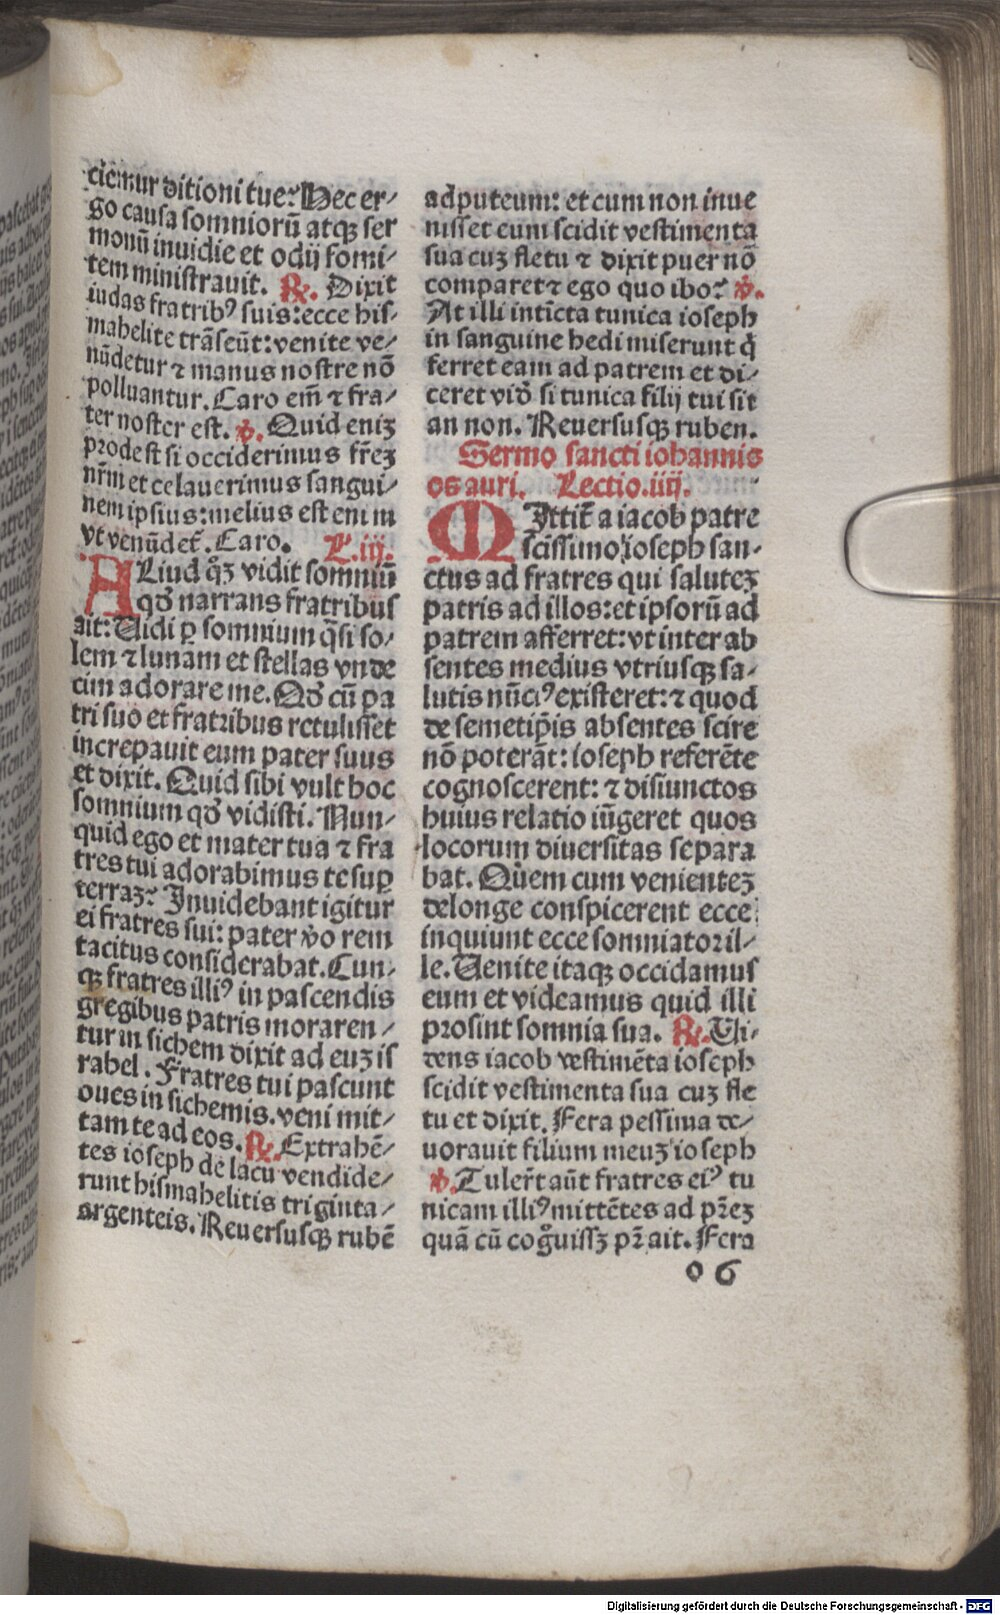 ciemur ditioni tue? Hec er-
go causa somniorū atqꝫ ser
monū inuidie et odij fomi-
tem ministrauit. ℟. Dixit
iudas fratribꝰ suis: ecce his-
mahelite trāseūt: venite ve-
nūdetur ⁊ manus nostre nō
polluantur. Caro em̄ ⁊ fra-
ter noster est. ℣. Quid eniꝫ
prodest si occiderimus fr̄eꝫ
nr̄m et celauerimus sangui-
nem ipsius: melius est enim
vt venūdet̄. Caro. L.iij.
ALiud q̄ꝫ vidit somniū
qd̄ narrans fratribus
ait: Uidi ꝑ somnium q̄si so-
lem ⁊ lunam et stellas vnde
cim adorare me. Qd̄ cū pa
tri suo et fratribus retulisset
increpauit eum pater suus
et dixit. Quid sibi vult hoc
somnium qd̄ vidisti. Nun-
quid ego et mater tua ⁊ fra
tres tui adorabimus te suꝑ
terraꝫ? Inuidebant igitur
ei fratres sui: pater v̄o rem
tacitus considerabat. Cun-
qꝫ fratres illiꝰ in pascendis
gregibus patris moraren-
tur in sichem dixit ad euꝫ is
rahel. Fratres tui pascunt
oues in sichemis. veni mit-
tam te ad eos. ℟. Extrahē-
tes ioseph de lacu vendide-
runt hismahelitis triginta-
argenteis. Reuersusqꝫ rubē
ad puteum: et cum non inue
nisset eum scidit vestimenta
sua cuꝫ fletu ⁊ dixit puer nō
comparet ⁊ ego quo ibo? ℣.
At illi intīcta tunica ioseph
in sanguine hedi miserunt q̄
ferret eam ad patrem et di-
ceret vid̄ si tunica filij tui sit
an non. Reuersusqꝫ ruben.
Sermo sancti iohannis
os auri. Lectio.iiij.
MIttit̄ a iacob patre
sc̄issimo ioseph san-
ctus ad fratres qui saluteꝫ
patris ad illos: et ipsorū ad
patrem afferret: vt inter ab
sentes medius vtriusqꝫ sa-
lutis nūciꝰ existeret: ⁊ quod
de semetip̄is absentes scire
nō poterāt: ioseph referēte
cognoscerent: ⁊ disiunctos
huius relatio iūgeret quos
locorum diuersitas separa
bat. Quem cum venienteꝫ
delonge conspicerent ecce
inquiunt ecce somniator il-
le. Uenite itaqꝫ occidamus
eum et videamus quid illi
prosint somnia sua. ℟. Ui-
dens iacob vestimēta ioseph
scidit vestimenta sua cuꝫ fle
tu et dixit. Fera pessima de-
uorauit filium meuꝫ ioseph
℣. Tuler̄t aūt fratres eiꝰ tu
nicam illiꝰ mittētes ad pr̄eꝫ
quā cū cogͦuissꝫ pr̄ ait. Fera
o 6
Digitalisierung gefördert durch die Deutsche Forschungsgemeinschaft - DFG